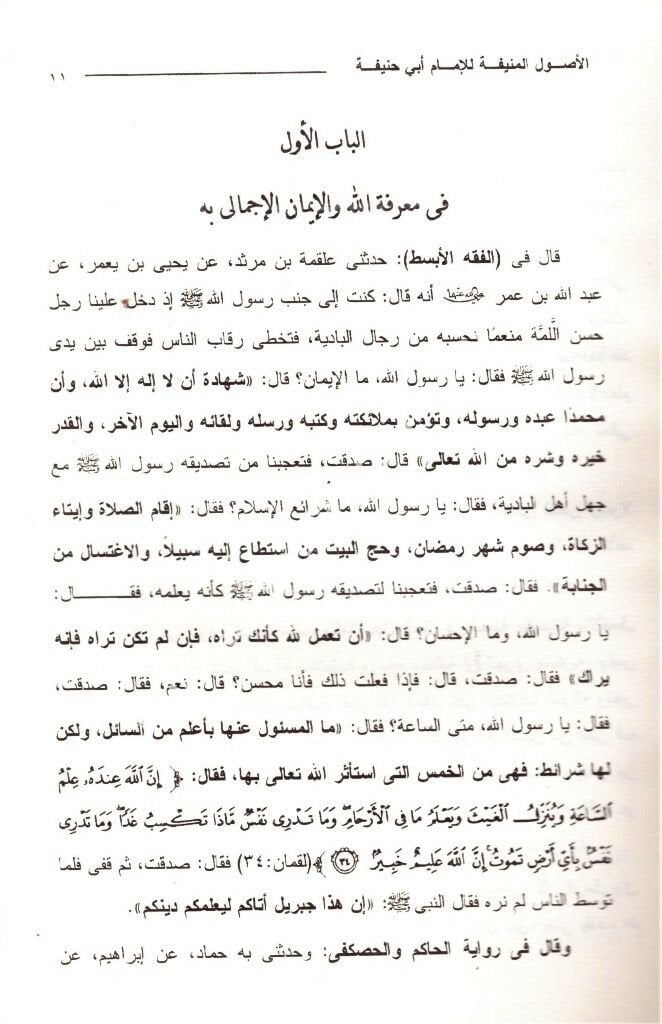 الأصول المنيفة للإمام أبي حنيفة ١١
الباب الأول
فى معرفة الله والإيمان الإجمالى به
قال فى (الفقه الأبسط): حدثنى علقمة بن مرثد، عن يحيى بن يعمر، عن
عبد الله بن عمر رضي الله عنهما أنه قال: كنت إلى جنب رسول الله ﷺ إذ دخل علينا رجل
حسن اللَّمَّة منعمًا نحسبه من رجال البادية، فتخطى رقاب الناس فوقف بين يدى
رسول الله ﷺ فقال: يا رسول الله، ما الإيمان؟ قال: «شهادة أن لا إله إلا الله، وأن
محمدًا عبده ورسوله، وتؤمن بملائكته وكتبه ورسله ولقائه واليوم الآخر، والقدر
خيره وشره من الله تعالى» قال: صدقت، فتعجبنا من تصديقه رسول الله ﷺ مع
جهل أهل البادية، فقال: يا رسول الله، ما شرائع الإسلام؟ فقال: «إقام الصلاة وإيتاء
الزكاة، وصوم شهر رمضان، وحج البيت من استطاع إليه سبيلاً، والاغتسال من
الجنابة». فقال: صدقت، فتعجبنا لتصديقه رسول الله ﷺ كأنه يعلمه، فقـــــال:
يا رسول الله، وما الإحسان؟ قال: «أن تعمل لله كأنك تراه، فإن لم تكن تراه فإنه
يراك» فقال: صدقت، قال: فإذا فعلت ذلك فأنا محسن؟ قال: نعم، فقال: صدقت،
فقال: يا رسول الله، متى الساعة؟ فقال: «ما المسئول عنها بأعلم من السائل، ولكن
لها شرائط: فهى من الخمس التى استأثر الله تعالى بها، فقال: ﴿ إِنَّ اللَّهَ عِندَهُۥ عِلْمُ
السَّاعَةِ وَيُنَزِّلُ الْغَيْثَ وَيَعْلَمُ مَا فِى الْأَرْحَامِ وَمَا تَدْرِى نَفْسٌ مَّاذَا تَكْسِبُ غَدًا وَمَا تَدْرِى
نَفْسٌ بِأَيِّ أَرْضٍ تَمُوتُ إِنَّ اللَّهَ عَلِيمٌ خَبِيرٌ ﴿٣٤﴾ ﴾(لقمان:٣٤) فقال: صدقت، ثم قفى فلما
توسط الناس لم نره فقال النبى ﷺ: «إن هذا جبريل أتاكم ليعلمكم دينكم».
وقال فى رواية الحاكم والحصكفى: وحدثنى به حماد، عن إبراهيم، عن